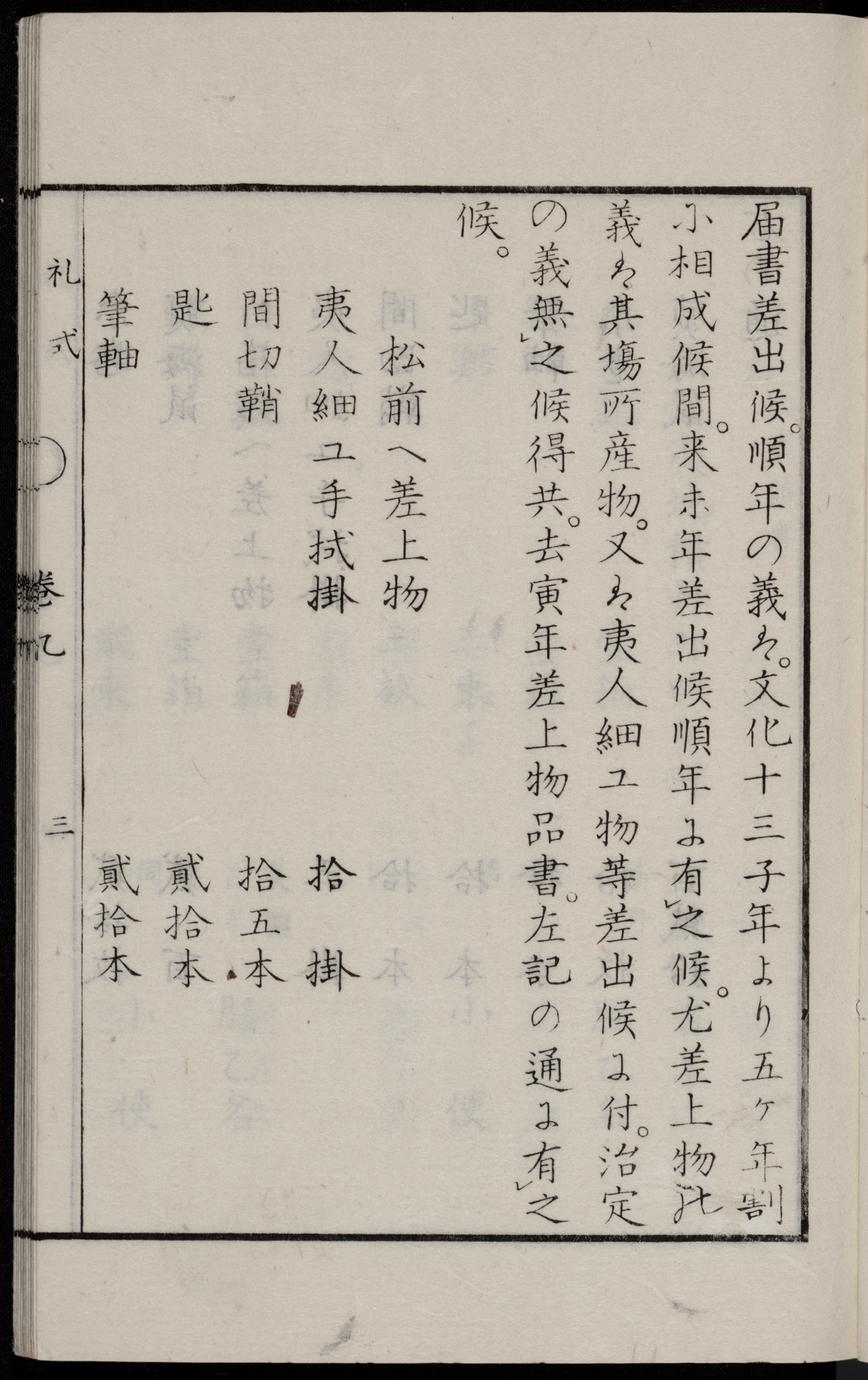 届書差出候。順年の義ハ。文化十三子年より五ケ年割
ニ相成候間。来未年差出候順年に有レ之候。尤差上物此
義ハ其塲所産物。又ハ夷人細工物等差出候に付。治定
の義無レ之候得共。去寅年差上物品書。左記の通に有レ之
候。
松前へ差上物
夷人細工手拭掛 拾掛
間切鞘 拾五本
匙 貳拾本
筆軸 貳拾本
礼式 巻九 三